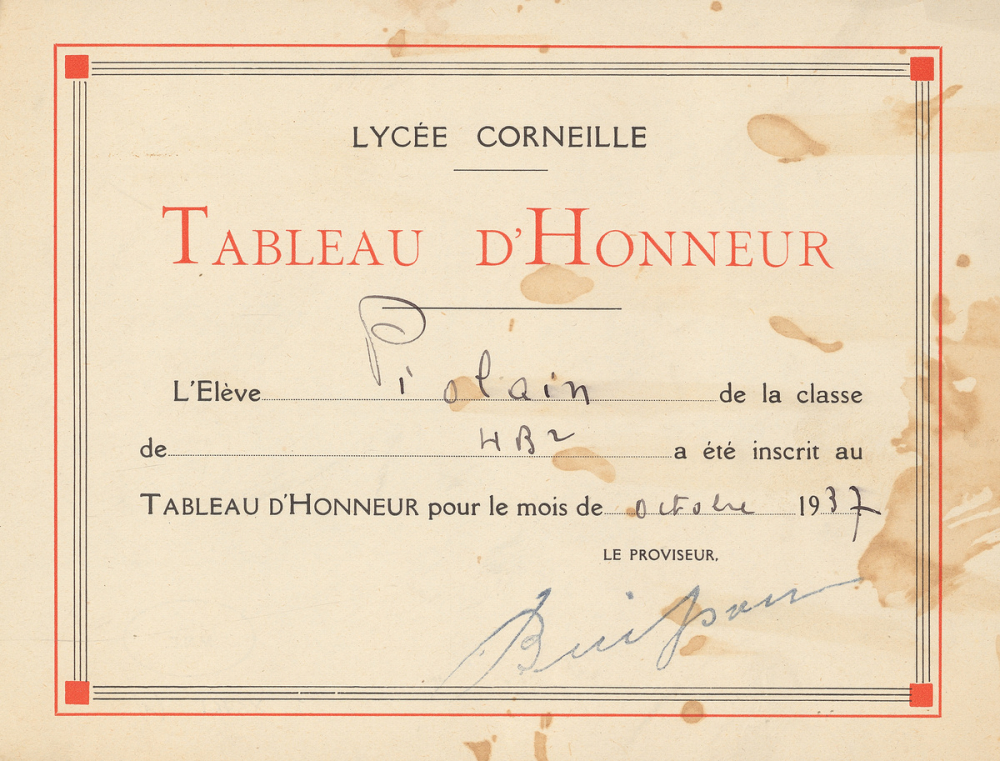 LYCÉE CORNEILLE
TABLEAU D'HONNEUR
L'Elève Piolain de la classe
de 4B2 a été inscrit au
TABLEAU D'HONNEUR pour le mois de octobre 1937
LE PROVISEUR,
Buisson